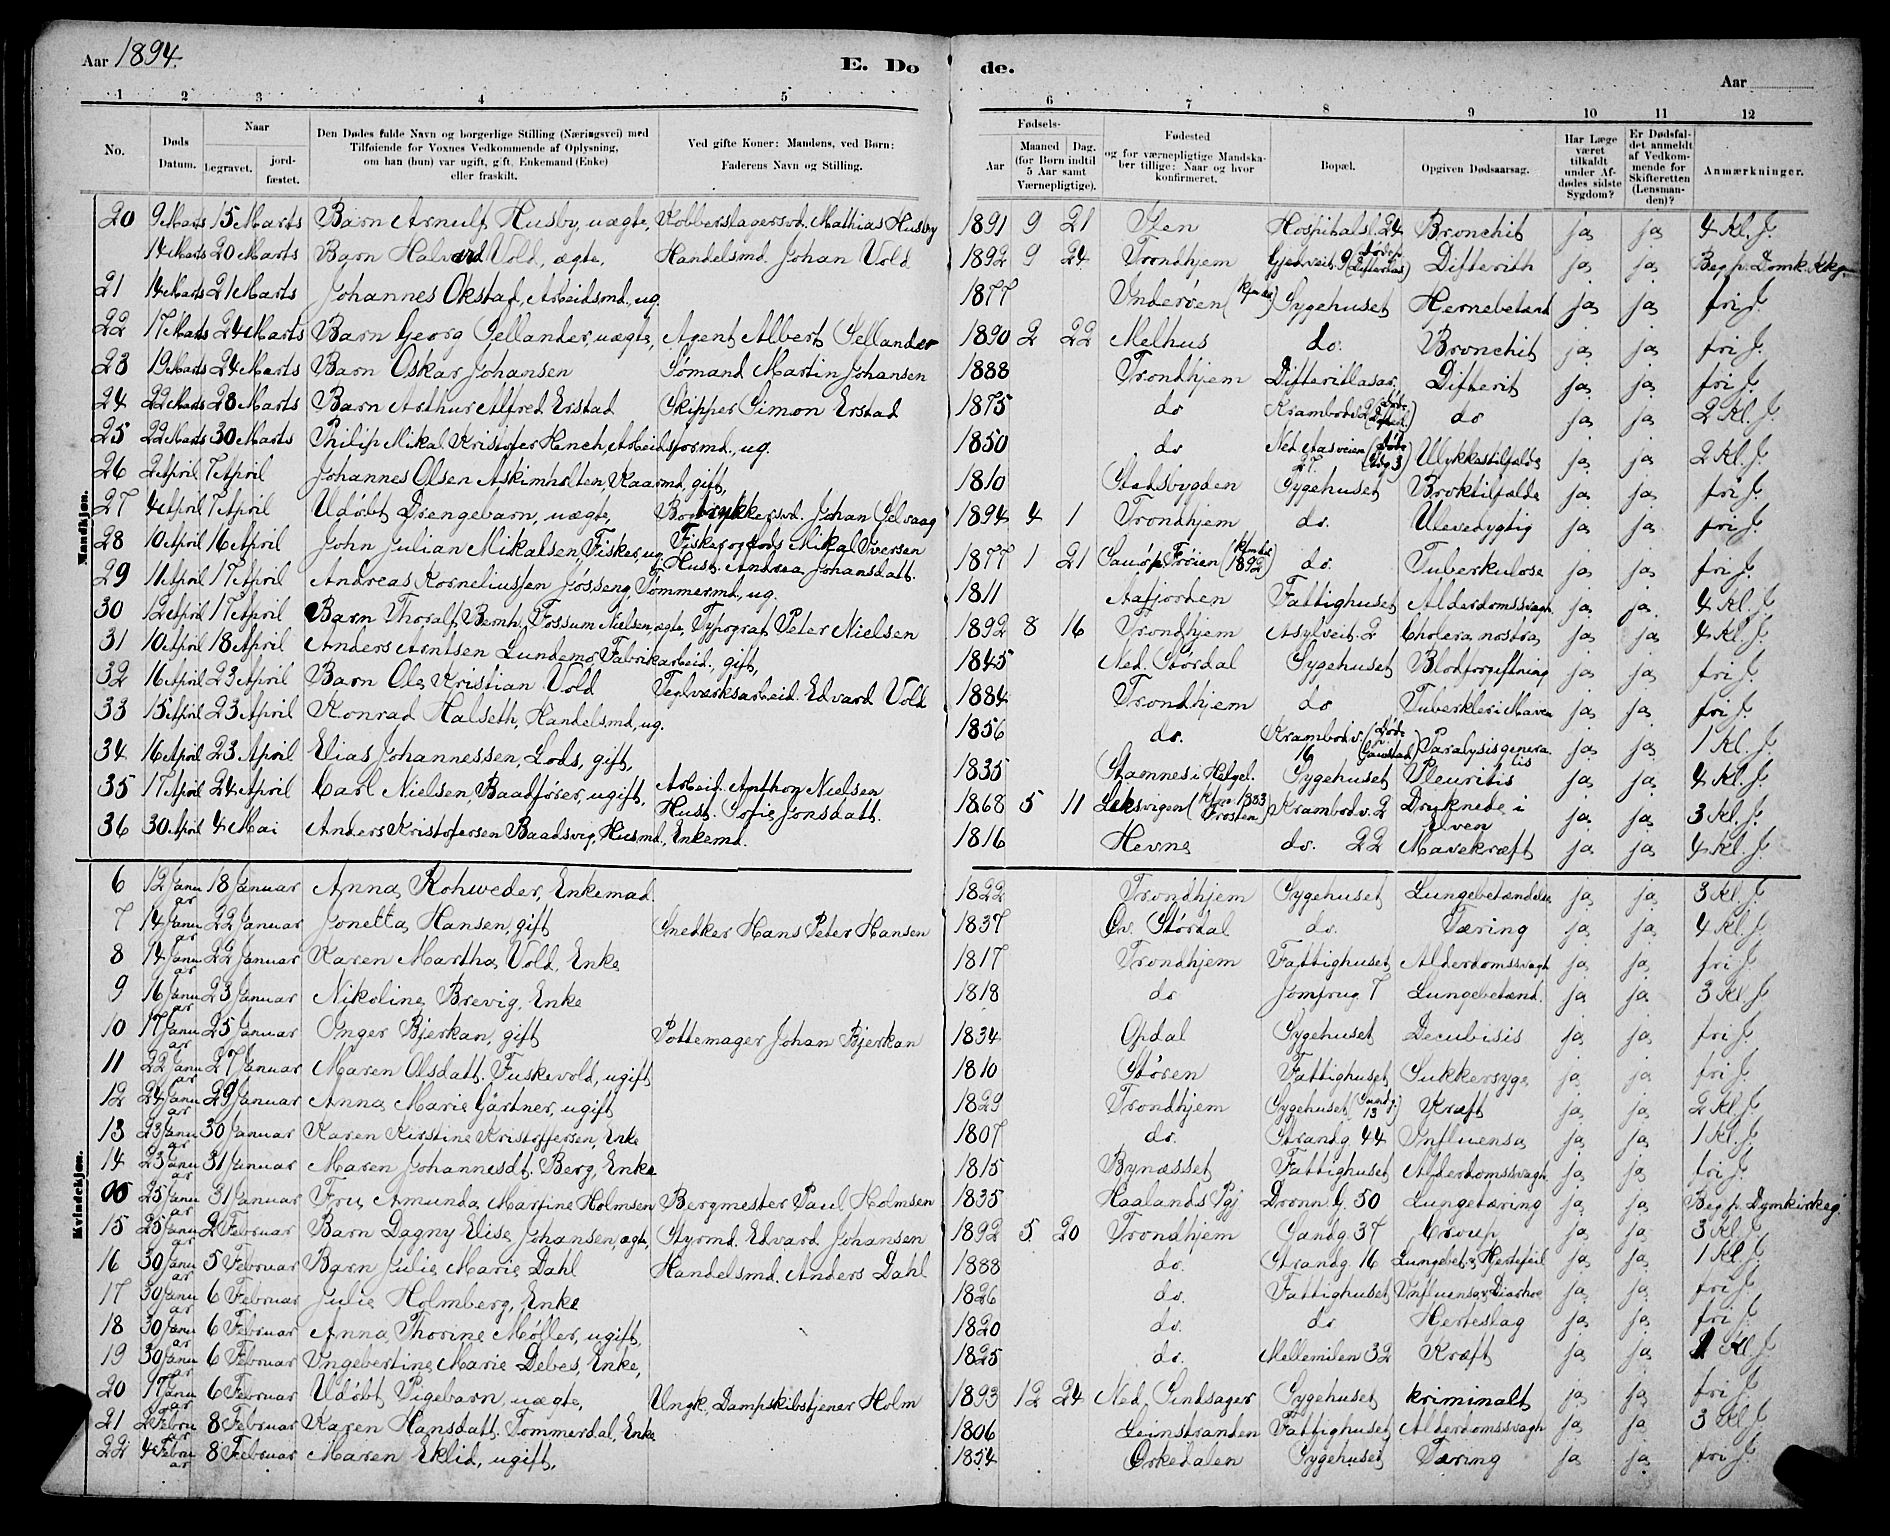 Aar 1894.
E. Dö de.
Aar
1 2 3 4 5 6 7 8 9 10 11 12
No. Døds Datum. Naar begravet. jordfæstet. Den Dødes fulde Navn og borgerlige Stilling (Næringsvei) med Tilføiende for Voxnes Vedkommende af Oplysning, om han (hun) var ugift, gift, Enkemand (Enke) eller fraskilt. Ved gifte Koner: Mandens, ved Børn: Faderens Navn og Stilling. Fødsels- Aar Maaned Dag. (for Børn indtil 5 Aar samt Værnepligtige). Fødested og for værnepligtige Mandskaber tillige: Naar og hvor konfirmeret. Bopæl. Opgiven Dødsaarsag. Har Læge været tilkaldt under Afdødes sidste Sygdom? Er Dødsfaldet anmeldt af Vedkommende for Skifteretten (Lensmanden)? Anmærkninger.
Mandkjøn.
20 9 Marts 15 Marts Barn Arnulf Husby, uægte, Kobberslagersvd. Mathias Husby 1891 9 21 Ilen Hospitalsl. 24 Bronchit ja ja 4 Kl. J.
14 Marts 20 Marts Barn Halvard Vold, ægte, Handelsmd. Johan Vold 1892 9 24 Trondhjem Gjetveit. 9 Difterith ja ja Beg. p. Domk. Kkg.
21 14 Marts 21 Marts Johannes Okstad, Arbeidsmd., ug. 1877 Inderøen Sygehuset Hernebetænd ja ja fri J.
22 17 Marts 24 Marts Barn Georg Sellander, uægte, Agent Albert Sellander 1890 2 22 Melhus do. Bronchit ja ja fri J.
23 19 Marts 24 Marts Barn Oskar Johansen Sømand Martin Johansen 1888 Trondhjem Difteritlasar. Difterit ja ja fri J.
24 22 Marts 28 Marts Barn Arthur Alfred Erstad Skipper Simon Erstad 1875 do Krambodv. 2 do ja ja 2 Kl. J.
25 22 Marts 30 Marts Philip Mikal Kristofer Hench, Arbeidsformd., ug. 1850 do Ned. Aasveien 27. Ulykkestilfælde ja ja 2 Kl. J.
26 2 April 7 April Johannes Olsen Askimholten, Kaarmd, gift, 1810 Stadsbygden Sygehuset Broktilfælde ja ja fri J.
27 4 April 7 April Udøbt Drengebarn, uægte, Bogtrykkersvd. Johan Selvaag 1894 4 1 Trondhjem do. Ulevedygtig ja ja fri J.
28 10 April 16 April John Julian Mikalsen, Fisker, ug. Fisker og Lods Mikal Iversen Hust. Andrea Johansdatt. 1877 1 21 Sauø p. Frøien (Kfmeret 1892) do. Tuberkulose ja ja fri J.
29 11 April 17 April Andreas Korneliussen Jøsseng, Tømmermd., ug. 1811 Aafjorden Fattighuset Alderdomssvagh. ja ja 4 Kl. J.
30 12 April 17 April Barn Thoralf Bernh. Fossum Nielsen, ægte, Typograf Peter Nielsen 1892 8 16 Trondhjem Asylveit. 2 Cholera nostra ja ja 4 Kl. J.
31 10 April 18 April Anders Arntsen Lundemo, Fabrikarbeid., gift, 1845 Ned. Størdal Sygehuset Blodforgiftning ja ja fri J.
32 16 April 23 April Barn Ole Kristian Vold Teglværksarbeid. Edvard Vold 1884 Trondhjem do Tuberkler i Maven ja ja fri J.
33 15 April 23 April Konrad Halseth, Handelsmd, ug. 1856 do. Krambodv. 16 (Døde p. Gaustad) Paralysis generalis ja ja 1 Kl. J.
34 16 April 23 April Elias Johannessen, Lods, gift, 1835 Stamnes i Helgel. Sygehuset Pleuritis ja ja 4 Kl. J.
35 17 April 24 April Carl Nielsen, Baadfører, ugift, Arbeid. Anthon Nielsen Hust. Sofie Jonsdatt. 1868 5 11 Leksvigen (Kfm. 1883 Frosten) Krambodv. 2 Druknede i Elven ja ja 3 Kl. J.
36 30 April 4 Mai Anders Kristofersen Baadsvig, Husmd., Enkemd. 1816 Hevne do. 22 Mavekræft ja ja 4 Kl. J.
Kvindekjøn.
6 12 Januar 18 Januar Anna Rohweder, Enkemad. 1822 Trondhjem Sygehuset Lungebetændelse ja ja 3 Kl. J.
7 14 Januar 22 Januar Jonetta Hansen, gift Snedker Hans Peter Hansen 1837 Øv. Størdal do. Tæring ja ja 4 Kl. J.
8 14 Januar 22 Januar Karen Martha Vold, Enke 1817 Trondhjem Fattighuset Alderdomssvagh ja ja fri J.
9 16 Januar 23 Januar Nikoline Brevig, Enke 1818 do Jomfrug. 7 Lungebetænd. ja ja 3 Kl. J.
10 17 Januar 25 Januar Inger Bjerkan, gift Pottemager Johan Bjerkan 1834 Opdal Sygehuset Decubisis ja ja fri J.
11 22 Januar 27 Januar Maren Olsdatt. Fuskevold, ugift 1810 Støren Fattighuset Sukkersyge ja ja fri J.
12 24 Januar 29 Januar Anna Marie Gärtner, ugift 1829 Trondhjem Sygehuset (Sandg. 13) Kræft ja ja 2 Kl. J.
13 23 Januar 30 Januar Karen Kirstine Kristoffersen, Enke 1807 do. Strandg 44 Influensa ja ja 1 Kl. J.
14 23 Januar 31 Januar Maren Johannesdt. Berg, Enke 1815 Bynæsset Fattighuset Alderdomssvagh ja ja fri J.
00 25 Januar 31 Januar Fru Amunda Martine Holmsen Bergmester Paul Holmsen 1835 Haalands Pgj Dronn. G. 50 Lungetæring ja ja Beg. p. Domkirkeg.
15 25 Januar 2 Februar Barn Dagny Elise Johansen, ægte, Styrmd. Edvard Johansen 1892 5 20 Trondhjem Sandg 37 Croup ja ja 3 Kl. J.
16 30 Januar 5 Februar Barn Julie Marie Dahl Handelsmd. Anders Dahl 1888 do. Strandg 16 Lungebet. & Hjertefeil ja ja 1 Kl. J.
17 30 Januar 6 Februar Julie Holmberg, Enke 1826 do. Fattighuset Influensa, Diarhoe ja ja fri J.
18 30 Januar 6 Februar Anna Thorine Møller, ugift, 1820 do. do Herteslag ja ja fri J.
19 30 Januar 6 Februar Ingebertine Marie Debes, Enke, 1825 do. Mellemilen 32 Kræft ja ja 1 Kl. J.
20 17 Januar 6 Februar Udøbt Pigebarn, uægte, Ungk. Dampskibstjener Holm 1893 12 24 Ned. Sindsager Sygehuset kriminalt ja ja fri J.
21 2 Februar 8 Februar Karen Hansdatt. Tommerdal, Enke 1806 Leinstranden Fattighuset Alderdomssvagh ja ja 3 Kl. J.
22 4 Februar 8 Februar Maren Eklid, ugift, 1854 Orkedalen Sygehuset Tæring ja ja fri J.